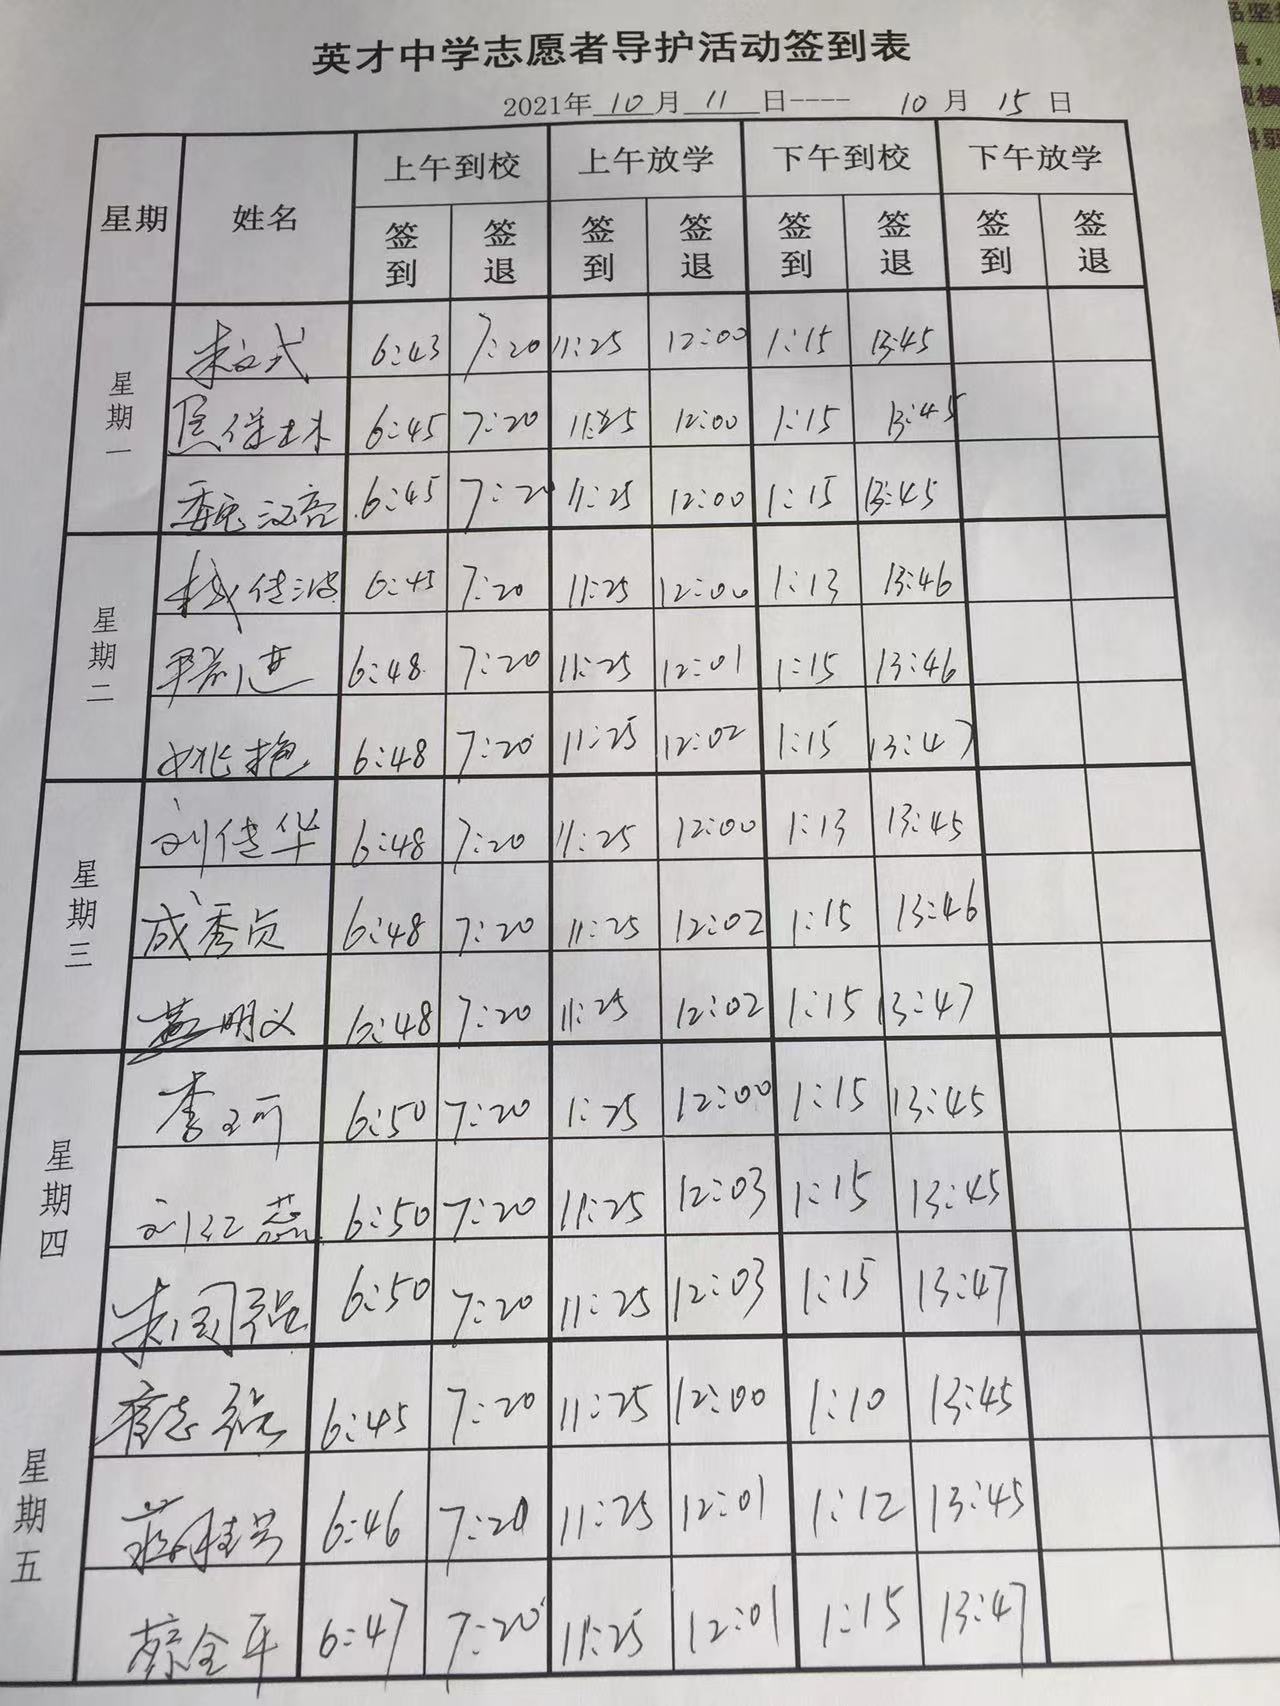 英才中学志愿者导护活动签到表
2021年 10 月 11 日---- 10 月 15 日
星期 姓名 上午到校 上午放学 下午到校 下午放学
签到 签退 签到 签退 签到 签退 签到 签退
星期一
朱文式 6:43 7:20 11:25 12:00 1:15 13:45
6:45 7:20 11:25 12:00 1:15 13:45
魏汉亮 6:45 7:20 11:25 12:00 1:15 13:45
星期二
传波 6:45 7:20 11:25 12:00 1:13 13:46
6:48 7:20 11:25 12:01 1:15 13:46
姚艳 6:48 7:20 11:25 12:02 1:15 13:47
星期三
刘传华 6:48 7:20 11:25 12:00 1:13 13:45
成秀贞 6:48 7:20 11:25 12:02 1:15 13:46
明义 6:48 7:20 11:25 12:02 1:15 13:47
星期四
李玉可 6:50 7:20 1:25 12:00 1:15 13:45
刘红蕊 6:50 7:20 11:25 12:03 1:15 13:45
朱国强 6:50 7:20 11:25 12:03 1:15 13:47
星期五
志强 6:45 7:20 11:25 12:00 1:10 13:45
6:46 7:20 11:25 12:01 1:12 13:45
蔡全平 6:47 7:20 11:25 12:01 1:15 13:47